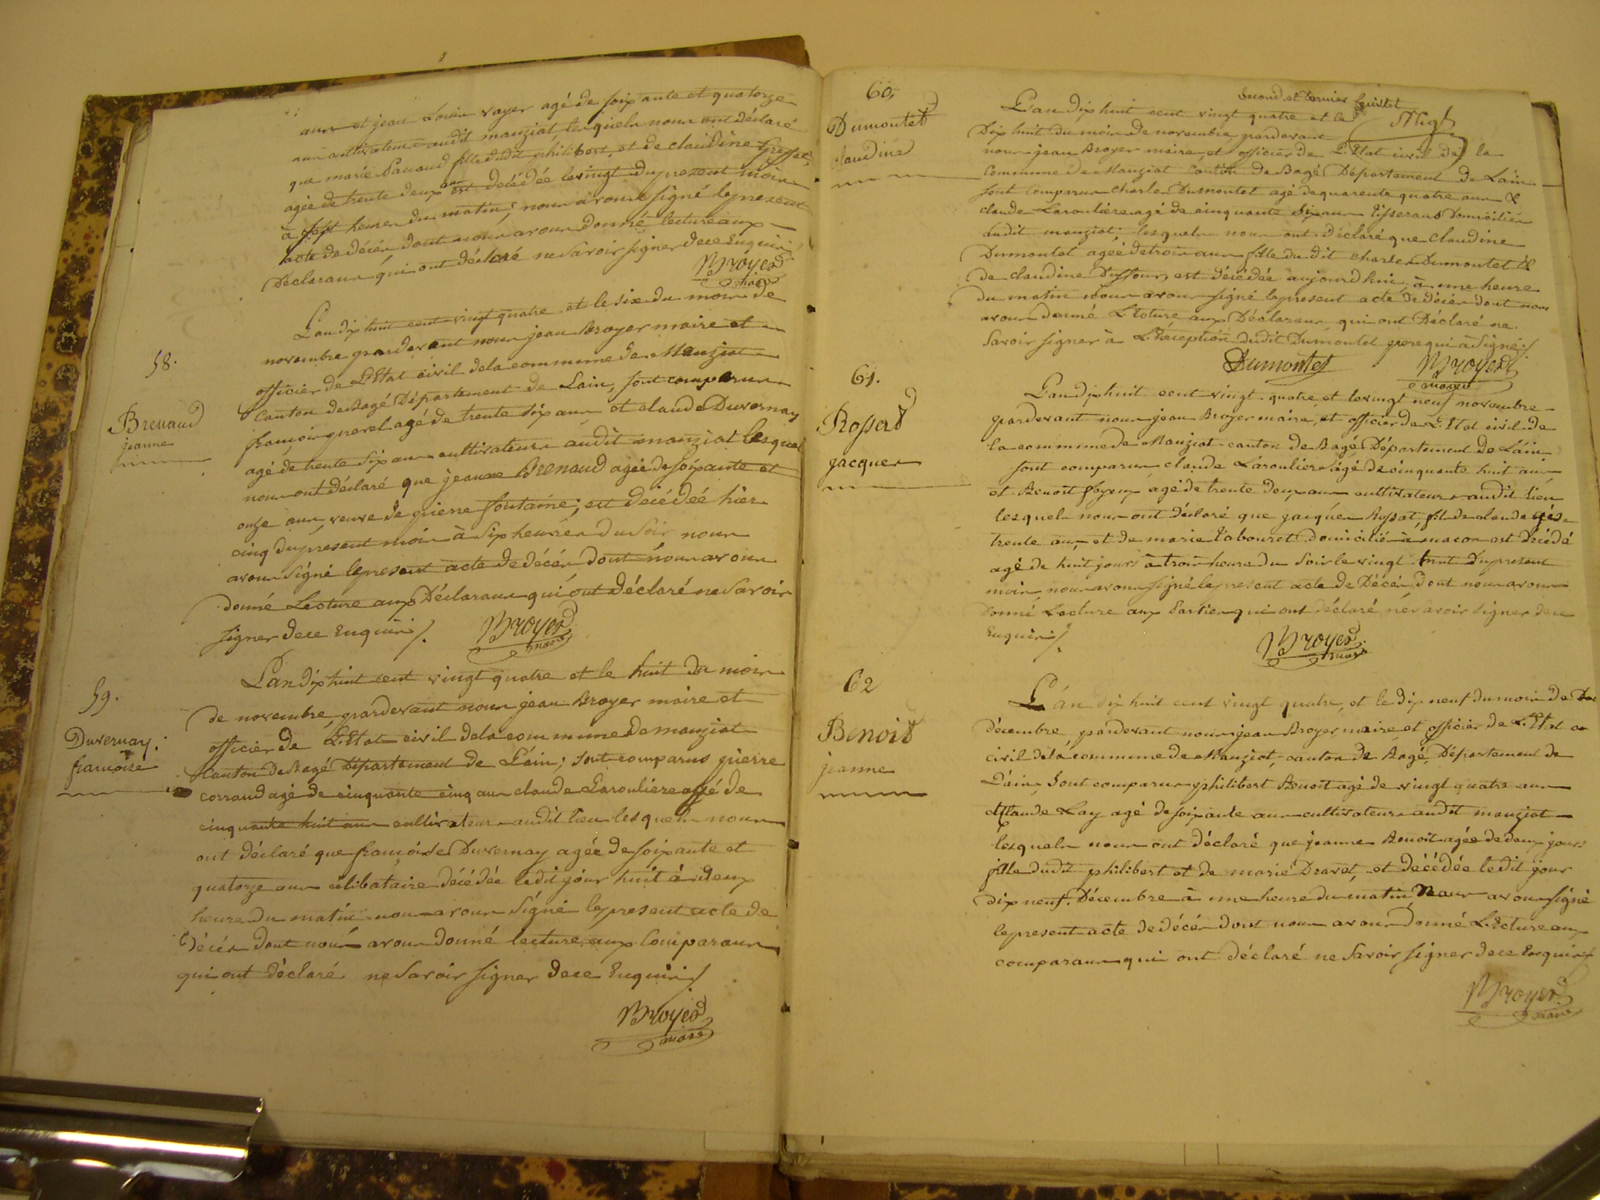 ans et jean Louis voyer agé de soixante et quatorze
ans cultivateurs audit manziat lesquels nous ont déclaré
que marie Pacaud fille dudit philibert, et de claudine
agée de trente deux ans est décédée le vingt du present mois
à sept heures du matin; nous avons signé le present
acte de décès dont nous avons donné lecture aux
Déclarans qui ont déclaré ne savoir signer de ce Enquis
Broyer
maire
58.
Brenaud
jeanne
L'an dix huit cent vingt quatre et le six du mois de
novembre pardevant nous jean Broyer maire et
officier de L'Etat civil de la commune de Manziat
canton de Bagé Département de Lain, sont comparus
françois querel agé de trente six ans et claude Duvernay
agé de trente six ans cultivateurs audit manziat lesquels
nous ont déclaré que jeanne Brenaud agée de soixante et
onze ans, veuve de pierre fontaine, est décédée hier
cinq du present mois à six heures du soir nous
avons signé le present acte de décès dont nous avons
donné Lecture aux Déclarans qui ont déclaré ne savoir
signer de ce Enquis /.
Broyer
maire
59.
Duvernay
françoise
L'an dix huit cent vingt quatre et le huit du mois
de novembre pardevant nous jean Broyer maire et
officier de L'Etat civil de la commune de manziat
canton de Bagé Département de Lain; sont comparus pierre
corsaud agé de cinquante cinq ans claude Laroulière agé de
cinquante huit ans cultivateurs audit lieu lesquels nous
ont déclaré que françoise Duvernay agée de soixante et
quatorze ans célibataire décédée ledit jour huit à deux
heures du matin nous avons signé le present acte de
Décès dont nous avons donné lecture aux Comparans
qui ont déclaré ne savoir signer de ce Enquis /
Broyer
maire
second et dernier feuillet
60,
Dumontet
claudine
L'an dix huit cent vingt quatre et le
Dix huit du mois de novembre pardevant
nous jean Broyer maire, et officier de L'Etat civil de la
Commune de Manziat canton de Bagé Département de Lain
sont comparus charles Dumontet agé de quarente quatre ans &
claude Laroulière agé de cinquante six ans Tisserans Domiciliés
audit manziat; lesquels nous ont déclaré que claudine
Dumontet agée de trois ans fille dudit charles Dumontet &
de claudine Duffour, est décédée aujourd'hui, à une heure
du matin nous avons signé le present acte de décès dont nous
avons donné Lecture aux Déclarans qui ont Déclaré ne
savoir signer à L'exception dudit Dumontet pere qui a Signé /
Dumontet
Broyer
maire
61.
Rossat
jacques
L'an dix huit cent vingt quatre et le vingt neuf novembre
pardevant nous jean Broyer maire, et officier de L'Etat civil de
la commune de Manziat canton de Bagé Département de Lain
sont comparus claude Laroulière agé de cinquante huit ans
et Benoit agé de trente deux ans cultivateurs audit lieu
lesquels nous ont déclaré que jacques Rossat, fils de claude agé de
trente ans, et de marie Tabouret Domicilié à macon est décédé
agé de huit jours à trois heures du soir le vingt huit du present
mois, nous avons signé le present acte de Décès dont nous avons
donné Lecture aux Parties qui ont déclaré ne savoir signer de ce
Enquis /.
Broyer
maire
62
Benoit
jeanne
L'an dix huit cent vingt quatre, et le dix neuf du mois de
décembre pardevant nous jean Broyer maire et officier de L'Etat
civil de la commune de Manziat canton de Bagé, Département de
L'ain Sont comparus philibert Benoit agé de vingt quatre ans
& claude Lay agé de soixante ans cultivateurs audit manziat
lesquels nous ont déclaré que jeanne Benoit agée de deux jours
fille dudit philibert et de marie Dravet, et décédée ledit jour
dix neuf Décembre à une heure du matin Nous avons signé
le present acte de décès dont nous avons donné Lecture aux
comparans qui ont déclaré ne savoir signer de ce Enquis /
Broyer
maire